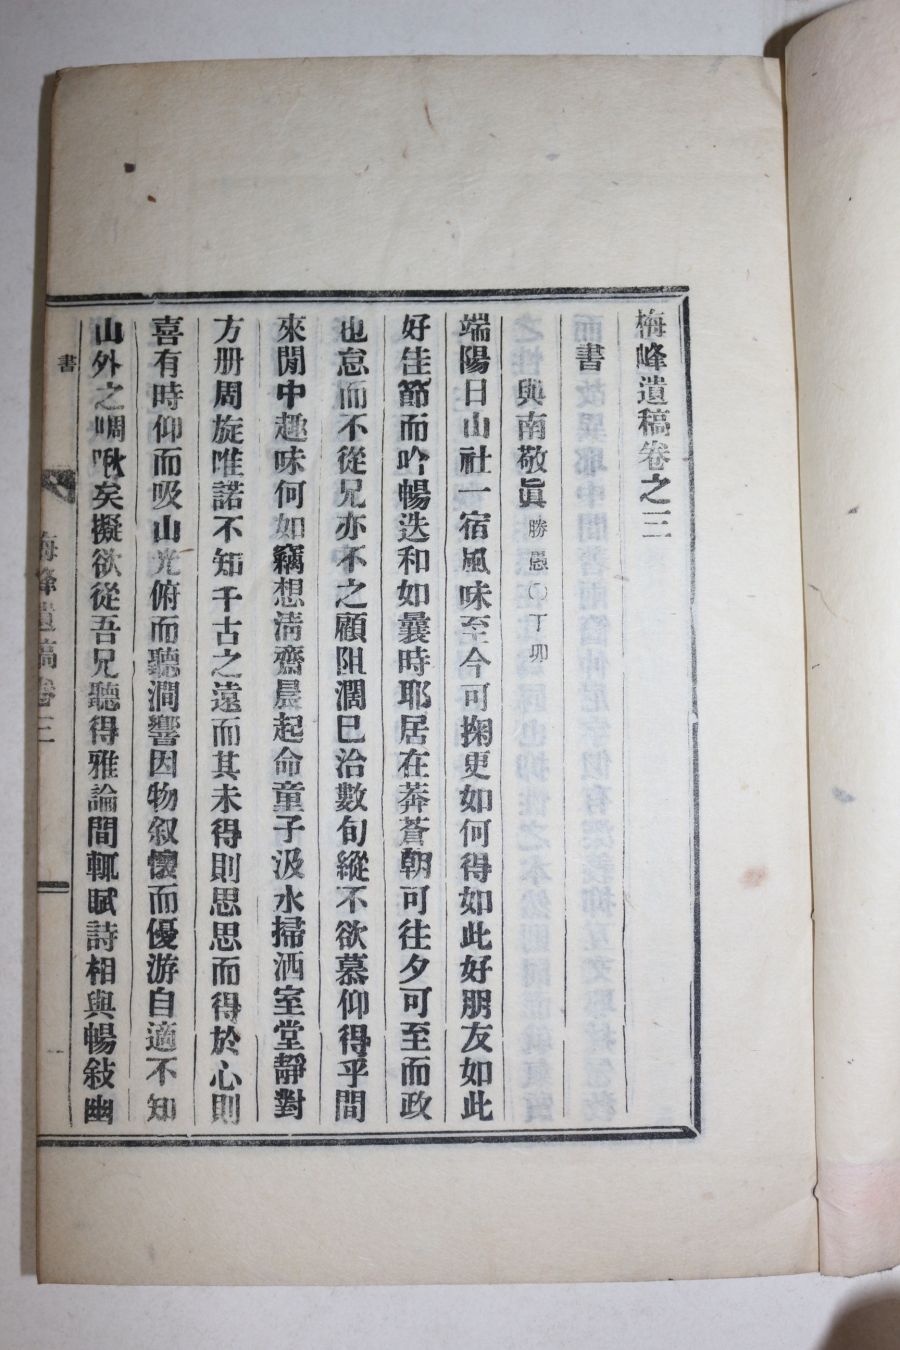 梅峰遺稿卷之三
書
與南敬眞 勝愚○丁卯
端陽日山社一宿風味至今可掬更如何得如此好朋友如此
好佳節而吟暢迭和如曩時耶居在莽蒼朝可往夕可至而政
也怠而不從兄亦不之顧阻濶已洽數旬縱不欲慕仰得乎間
來閒中趣味何如竊想淸齋晨起命童子汲水掃洒室堂靜對
方册周旋唯諾不知千古之遠而其未得則思思而得於心則
喜有時仰而吸山光俯而聽澗響因物叙懷而優游自適不知
山外之啁啾矣擬欲從吾兄聽得雅論間輒賦詩相與暢敍幽
書
梅峰遺稿卷三